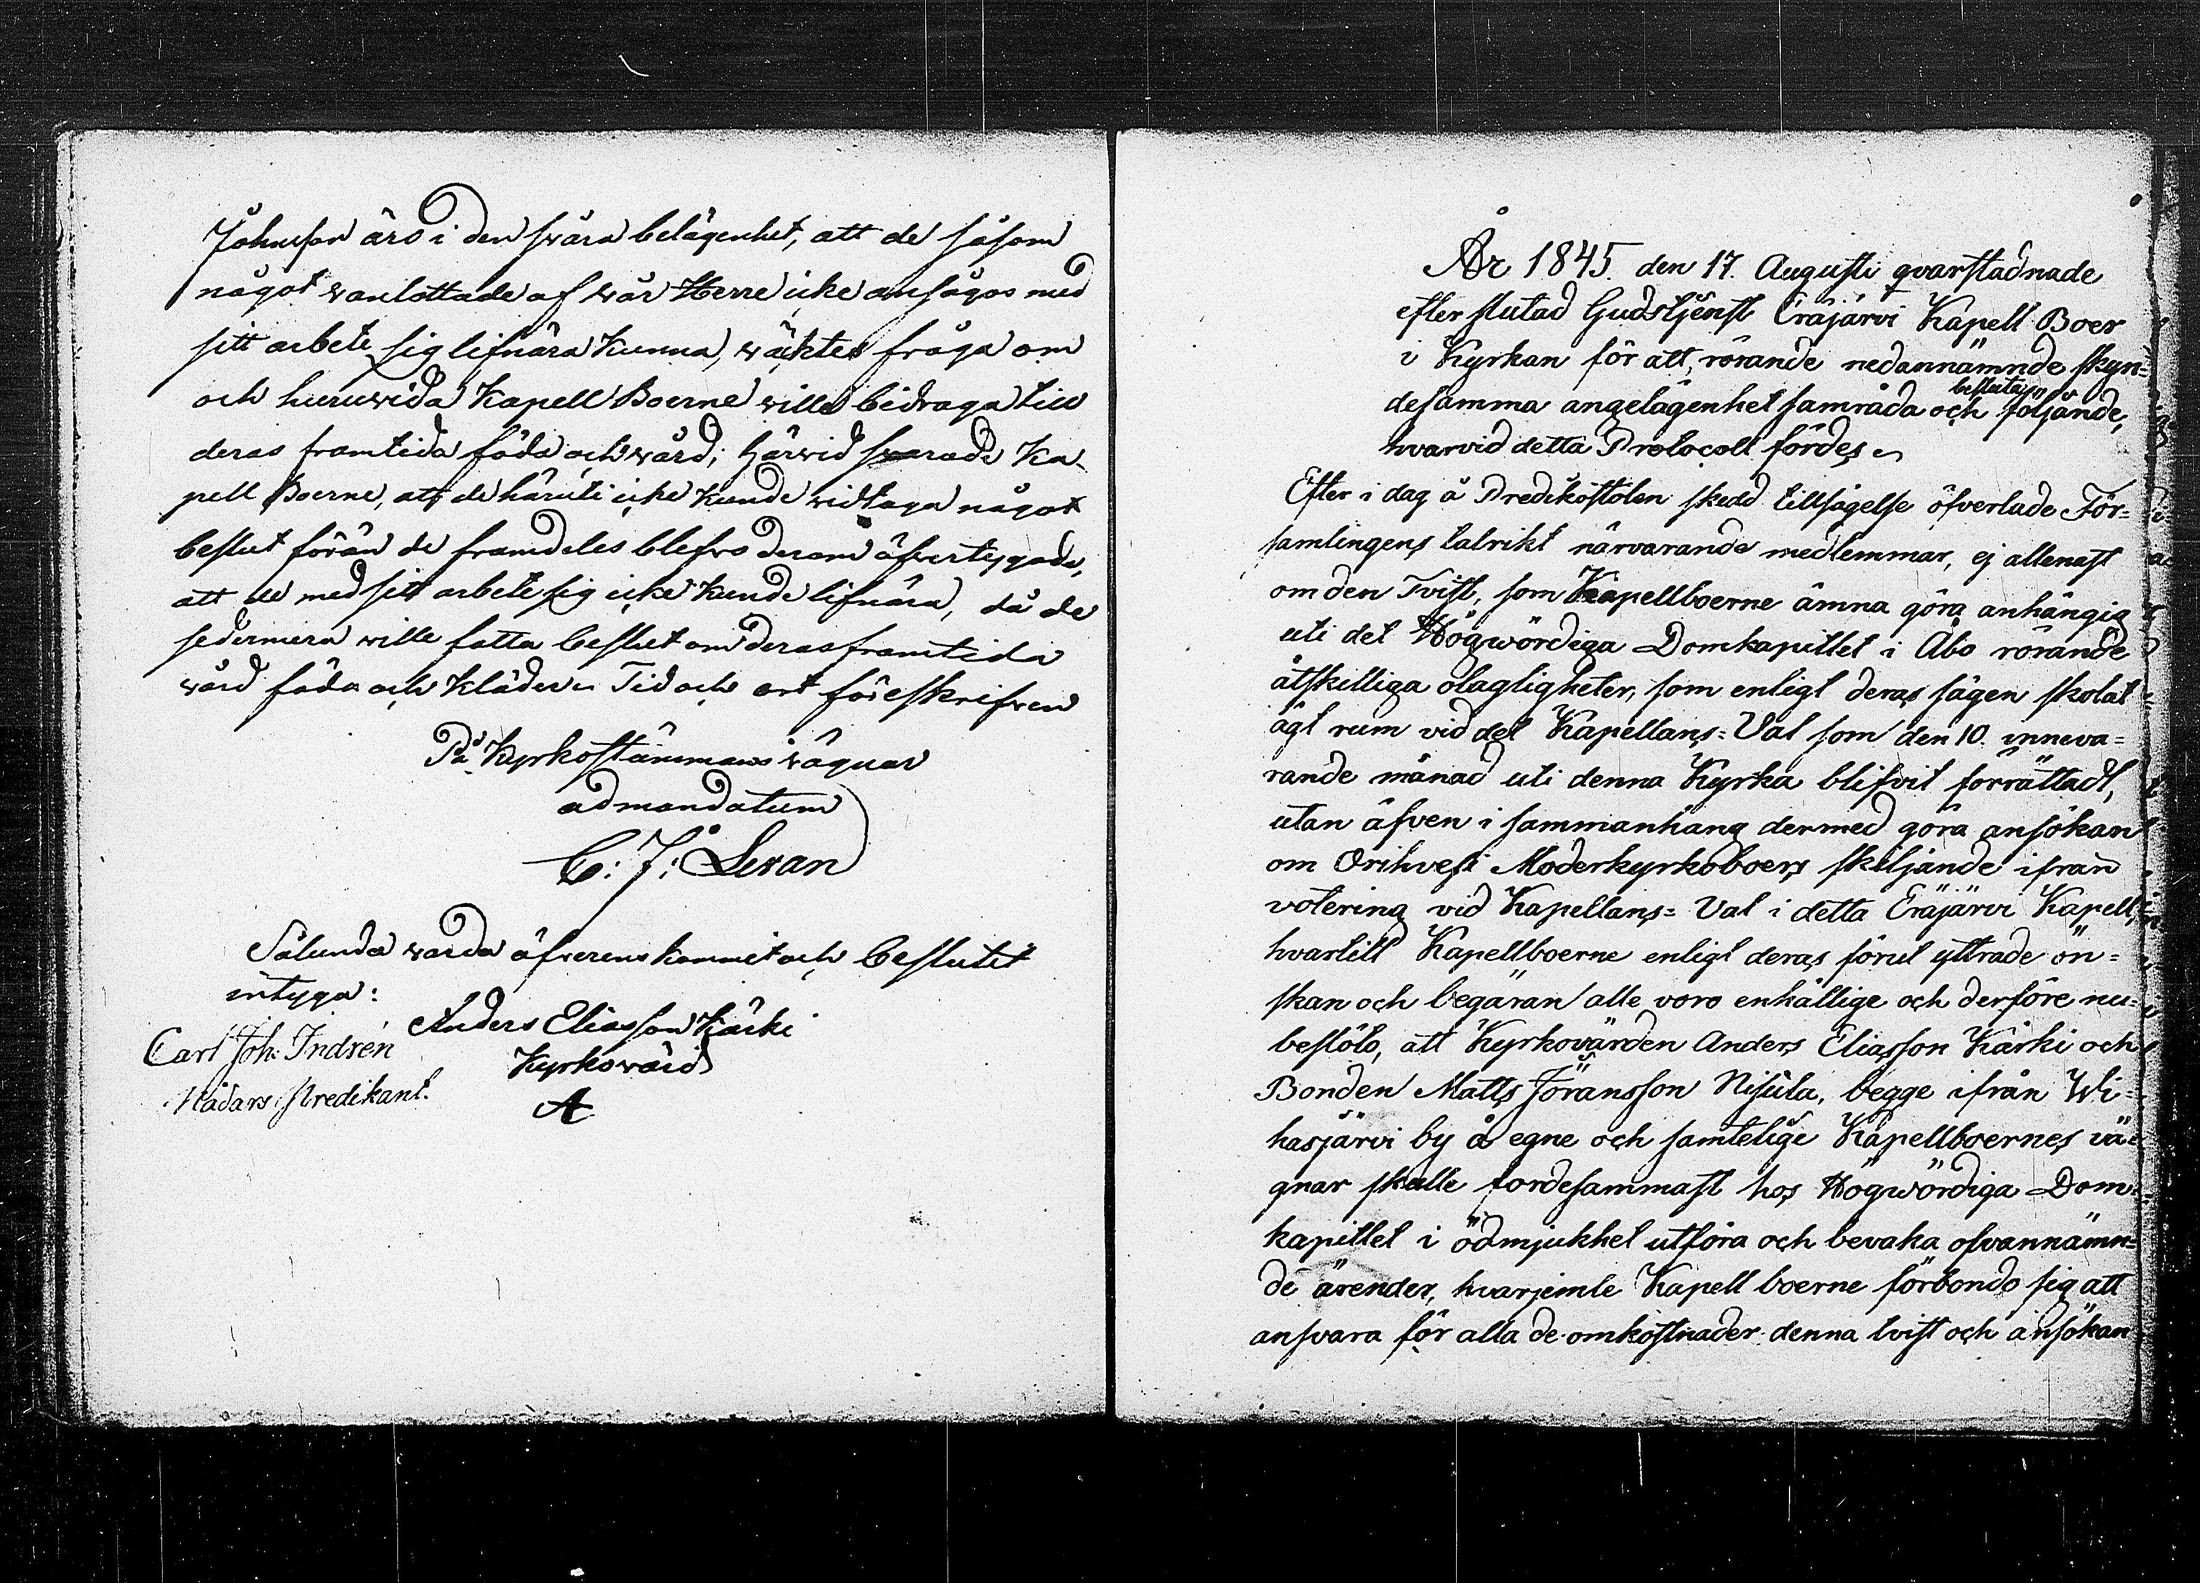 Johnsson äro i den swåra belägenhet, att de såsom
något wanlottade af wår Herre icke ansågos med
sitt arbete sig lifnära kunna, wäktes fråga om
och huruwida Kapell Boerne wille bidraga till
deras framtida föda och wård; härwid swarade Ka-
pell Boerne, att de häruti icke kunde widtaga något
beslut förän de framdeles blefvo derom öfvertygade,
att de med sitt arbete sig icke kunde lifnära, då de
sedermera wille fatta beslut om deras framtida
wård föda och kläder. Tid och ort föreskrifven
På Kyrkostämmans wägnar
ad mandatum
C: J: Levan
Sålunda warda öfverenskommit och beslutit
intyga:
Anders Eliasson Kärki
Kyrkovärd
A
Carl Joh: Indrén
Nådårs Predikant.
År 1845. den 17. Augusti qvarstadnade
efter slutad Gudstjenst Eräjärvi Kapell Boer
i Kyrkan för att, rörande nedannämnde skyn=
desamma angelägenhet samråda och besluta följande,
hvarvid detta Protocoll fördes.
Efter i dag å Predikostolen skedd tillsägelse öfverlade För=
samlingens talrikt närvarande medlemmar, ej allenast
om den Tvist, som Kapellboerne ämna göra anhängig
uti det Högwördiga Domkapitlet i Åbo rörande
åtskilliga olagligheter, som enligt deras sägen skolat
ägt rum vid det Kapellans=Val som den 10. inneva=
rande månad uti denna Kyrka blifvit förrättadt,
utan äfven i sammanhang dermed göra ansökan
om Orihvesi Moderkyrkoboers skiljande ifrån
votering vid Kapellans=Val i detta Eräjärvi Kapell,
hvartill Kapellboerne enligt deras förut yttrade ön=
skan och begäran alle voro enhällige och derföre nu
beslöto, att Kyrkovärden Anders Eliasson Kärki och
Bonden Matts Jöransson Nisula, begge ifrån Wi=
hasjärvi by å egne och samtelige Kapellboernes vä=
gnar skulle fordesammast hos Högwördiga Dom=
kapitlet i ödmjukhet utföra och bevaka ofvannämn=
de ärender, hvarjemte Kapell boerne förbondo sig att
ansvara för alla de omkostnader denna tvist och ansökan